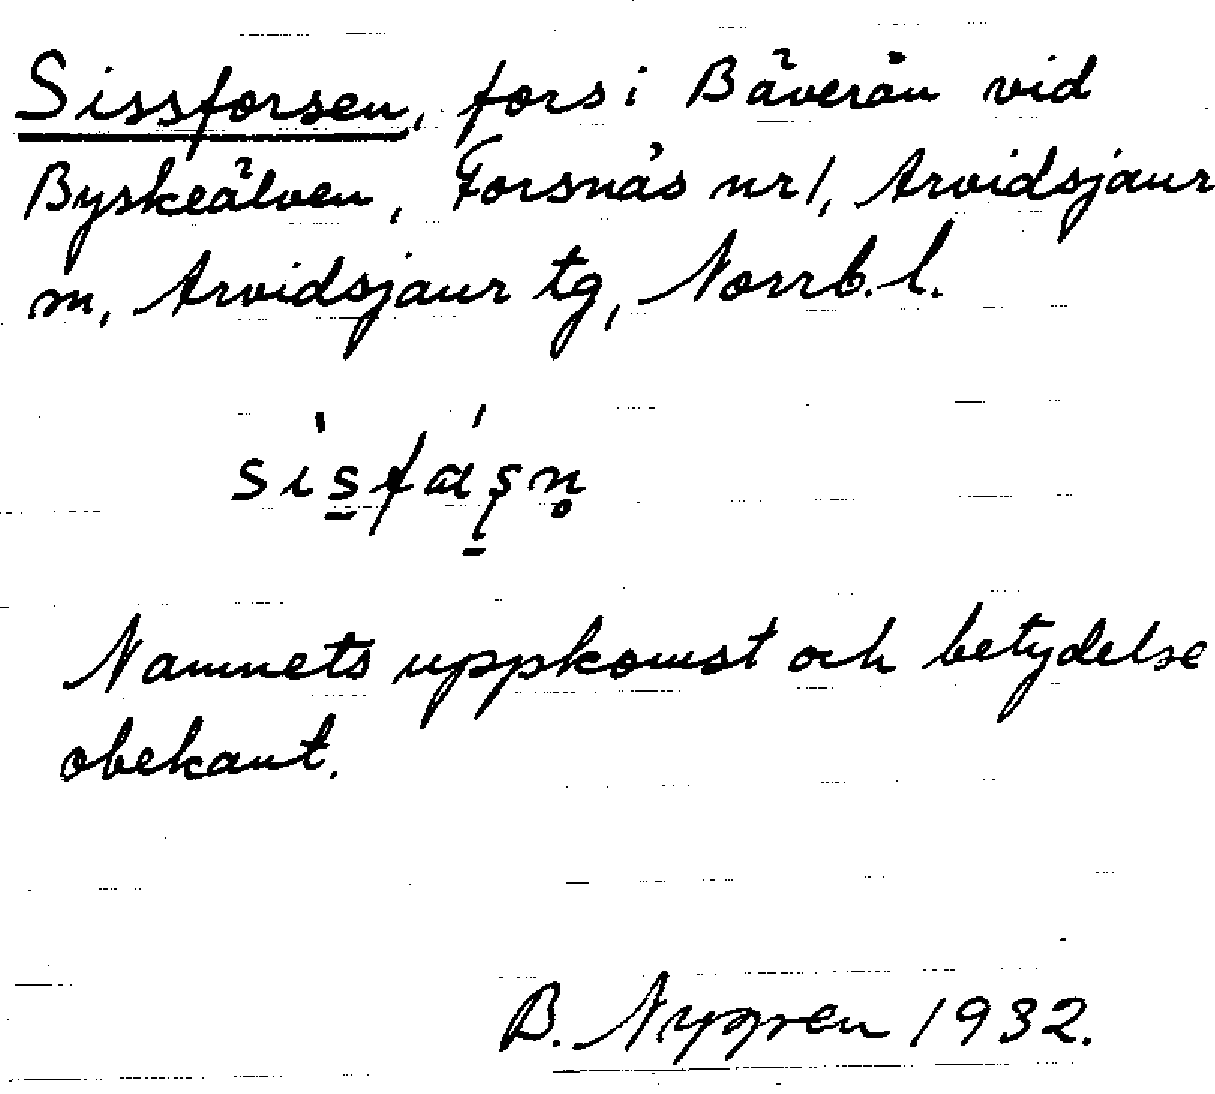 Sissforsen, fors i Bäverån vid
Byskeälven, Forsnäs nr 1, Arvidsjaur
m, Arvidsjaur tg, Norrb. l.
Namnets uppkomst och betydelse
obekant.
B. Nygren 1932.